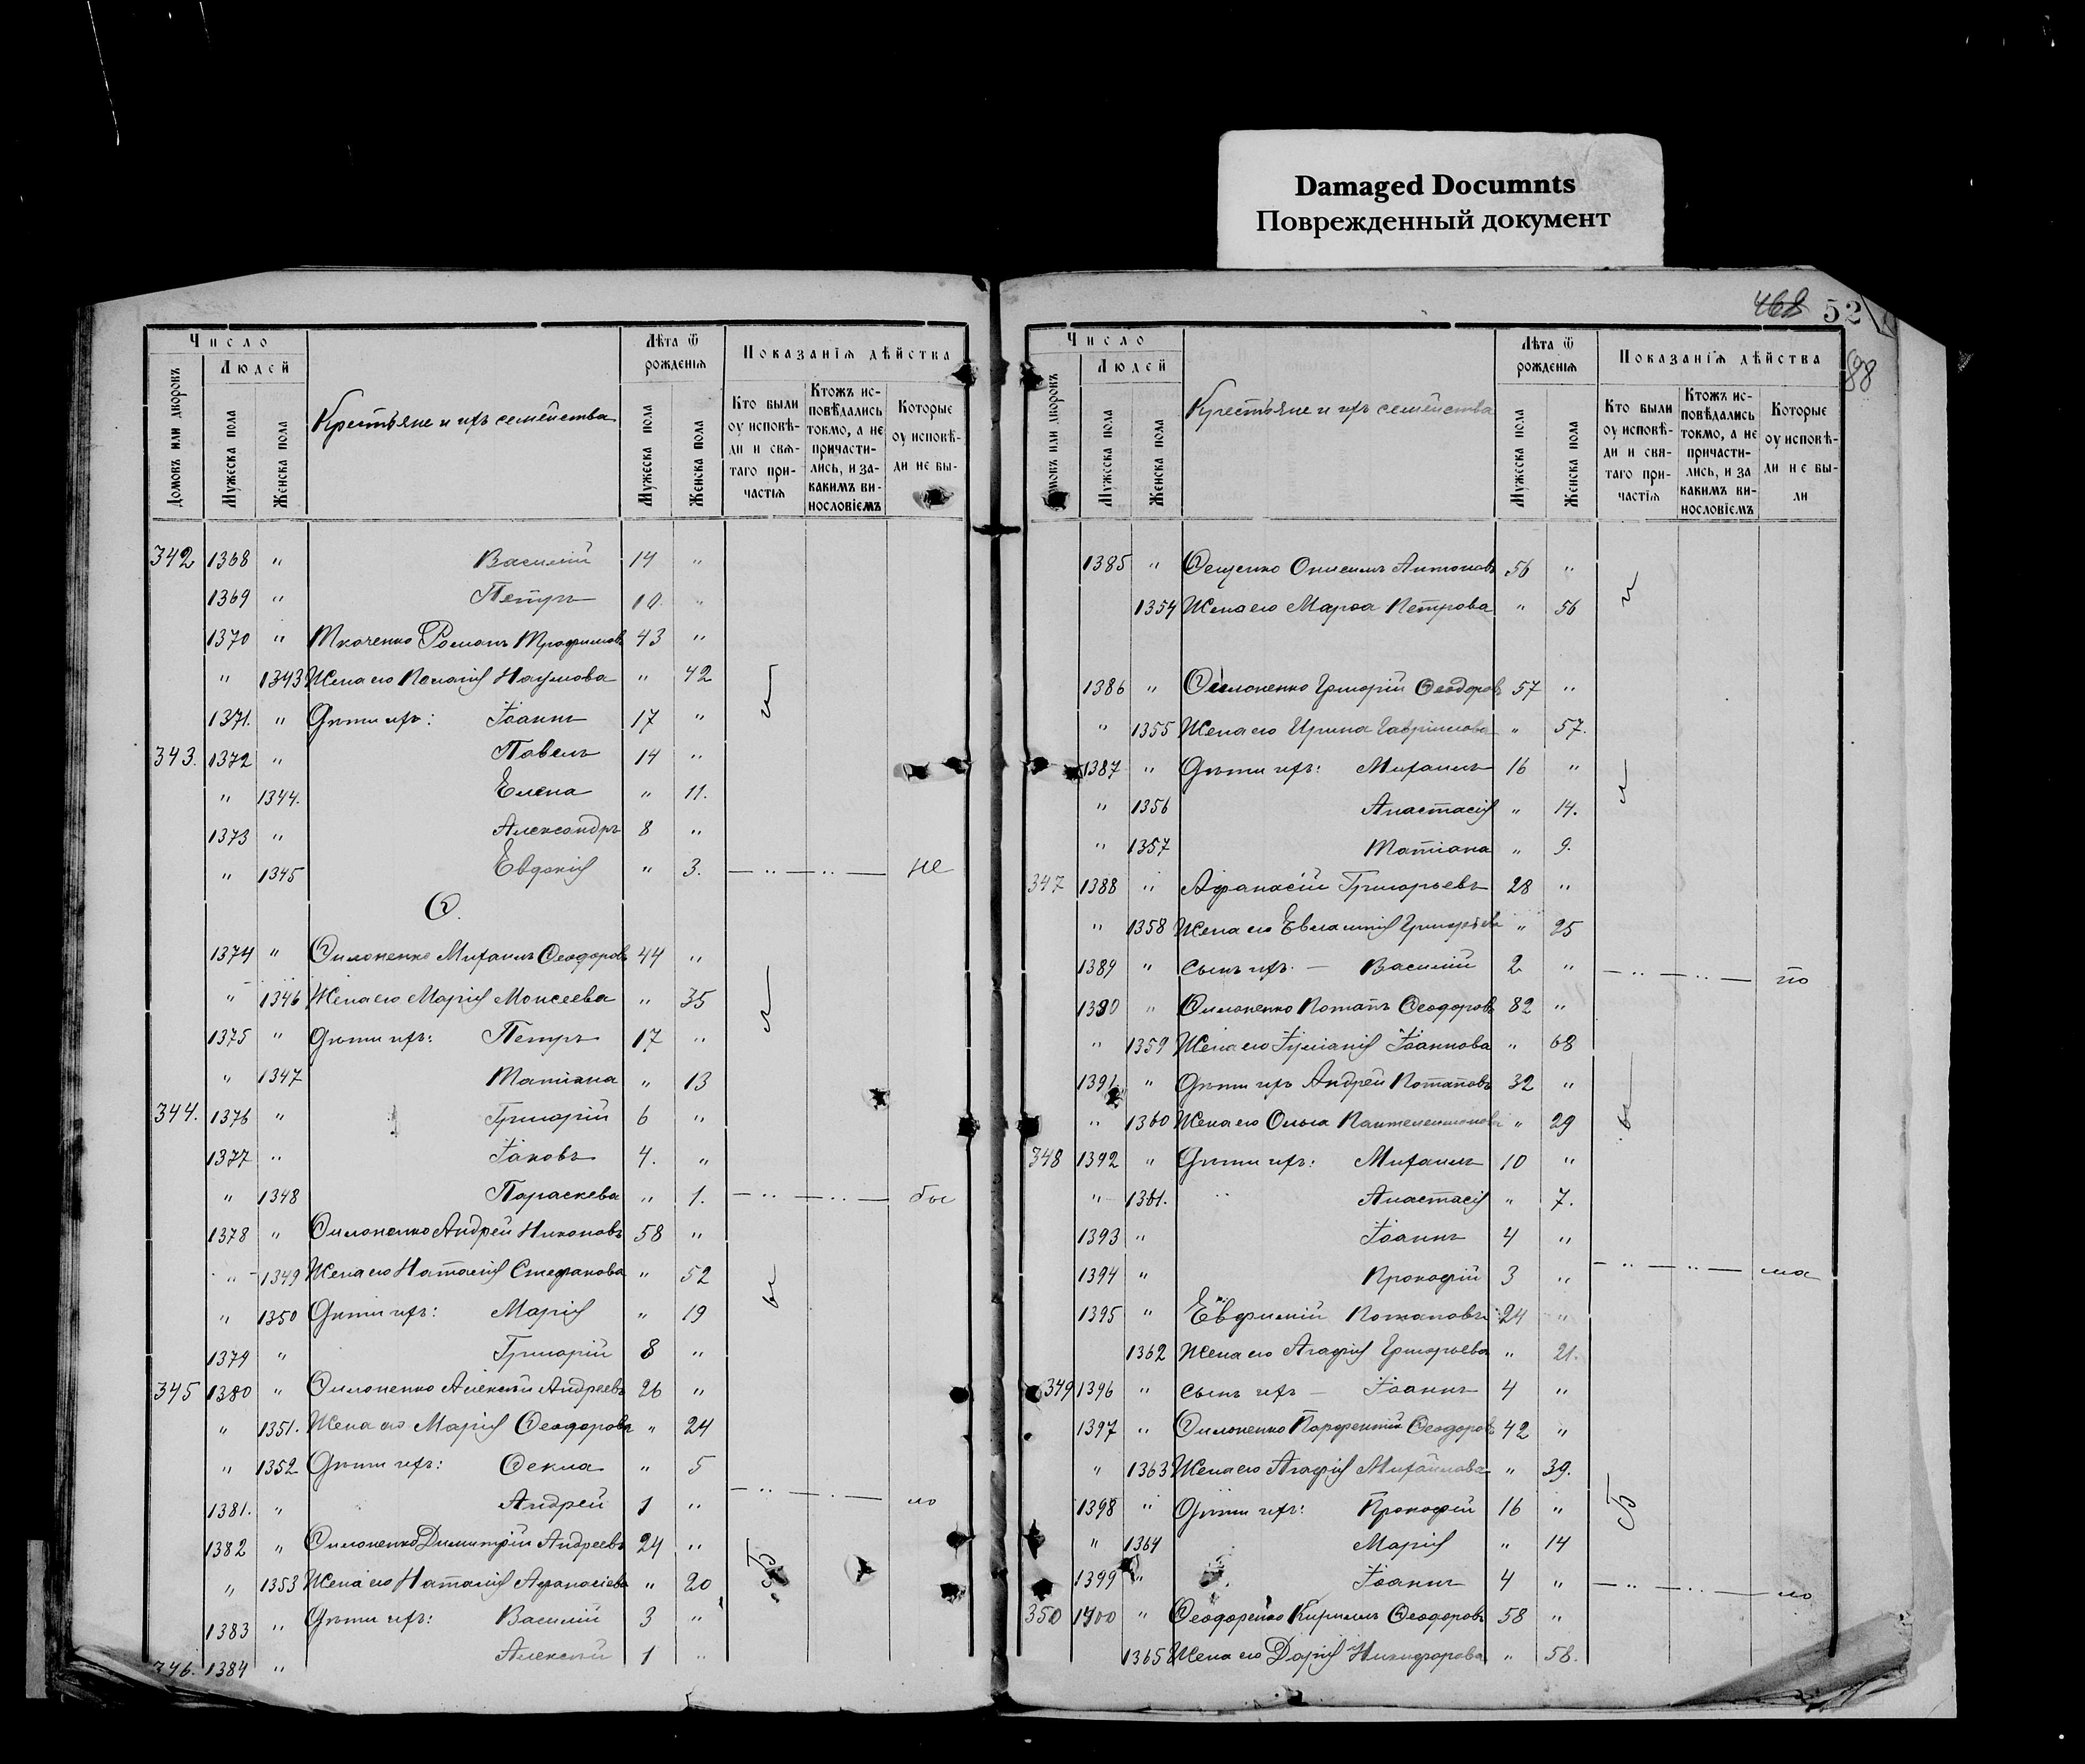 Damaged Documnts
Поврежденный документ
468 52
88
Число
Людей
Домовъ или дворовъ
Мужеска пола
Женска пола
Крестьяне и ихъ семейства
Лѣта ѿ рожденія
Мужеска пола
Женска пола
Показанія дѣйства
Кто были оу исповѣди и свѧтаго причастіѧ
Ктожъ исповѣдались токмо, а не причастились, и за какимъ винословіемъ
Которые оу исповѣди не бы-
342 1368 " Василій 14 "
1369 " Петръ 10 "
1370 " Ткаченко Романъ Трофимовъ 43 "
" 1343 Жена его Пелагія Наумова " 42
1371. " Дѣти ихъ: Іоаннъ 17 "
343. 1372 " Павелъ 14 "
" 1344. Елена " 11.
1373 " Александръ 8 "
" 1345 Евдокія " 3. — " — " — не
Ѳ.
1374 " Ѳилоненко Михаилъ Ѳеодоровъ 44 "
" 1346 Жена его Марія Моисеева " 35
1375 " Дѣти ихъ: Петръ 17 "
" 1347 Татіана " 13
344. 1376 " Григорій 6 "
1377 " Іаковъ 4. "
" 1348 Параскева " 1. — " — " — бы
1378 " Ѳилоненко Андрей Никоновъ 58 "
" 1349 Жена его Наталія Стефанова " 52
" 1350 Дѣти ихъ: Марія " 19
1379 " Григорій 8 "
345 1380 " Ѳилоненко Алексѣй Андреевъ 26 "
" 1351. Жена его Марія Ѳеодорова " 24
" 1352 Дѣти ихъ: Ѳекла " 5
1381. " Андрей 1 " — " — " — ло
1382 " Ѳилоненко Димитрій Андреевъ 24 "
" 1353 Жена его Наталія Аѳанасіева " 20
1383 " Дѣти ихъ: Василій 3 "
346. 1384 " Алексѣй 1 "
Число
Людей
Домовъ или дворовъ
Мужеска пола
Женска пола
Крестьяне и ихъ семейства
Лѣта ѿ рожденія
Мужеска пола
Женска пола
Показанія дѣйства
Кто были оу исповѣди и свѧтаго причастіѧ
Ктожъ исповѣдались токмо, а не причастились, и за какимъ винословіемъ
Которые оу исповѣди не были
1385 " Ѳещенко Онисимъ Антоновъ 56 "
1354 Жена его Марѳа Петрова " 56
1386 " Ѳилоненко Григорій Ѳеодоровъ 57 "
" 1355 Жена его Ирина Гавріилова " 57.
1387 " Дѣти ихъ: Михаилъ 16 "
" 1356 Анастасія " 14.
" 1357 Татіана " 9.
347 1388 " Аѳанасій Григорьевъ 28 "
" 1358 Жена его Евлампія Григорьева " 25
1389 " Сынъ ихъ — Василій 2 " — " — " — по
1390 " Ѳилоненко Потапъ Ѳеодоровъ 82 "
" 1359 Жена его Іуліанія Іоаннова " 68
1391. " Дѣти ихъ Андрей Потаповъ 32 "
" 1360 Жена его Ольга Пантелеимонова " 29
348 1392 " Дѣти ихъ: Михаилъ 10 "
" 1361. Анастасія " 7.
1393 " Іоаннъ 4 "
1394 " Прокофій 3 " — " — " — ма
1395 " Евфимій Потаповъ 24 "
1362 Жена его Агафія Григорьева " 21.
349 1396 " Сынъ ихъ — Іоаннъ 4 "
1397 " Ѳилоненко Парфентій Ѳеодоровъ 42 "
" 1363 Жена его Агафія Михайлова " 39.
1398 " Дѣти ихъ: Прокофій 16 "
" 1364 Марія " 14
1399 " Іоаннъ 4 " — " — " — ло
350 1400 " Ѳеодоренко Кириллъ Ѳеодоровъ 58 "
1365 Жена его Дарія Никифорова " 58.